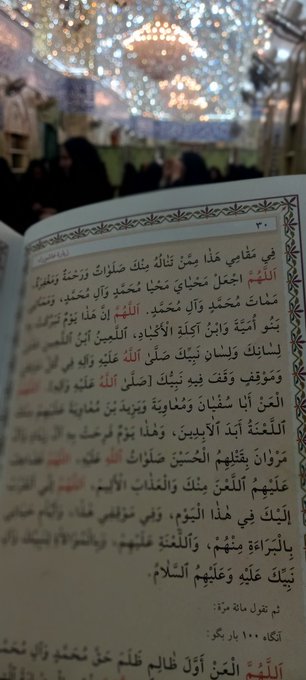 ٣٠
فِي مَقَامِي هٰذَا مِمَّنْ تَنَالُهُ مِنْكَ صَلَوَاتٌ وَرَحْمَةٌ وَمَغْفِرَةٌ.
اَللّٰهُمَّ اجْعَلْ مَحْيَايَ مَحْيَا مُحَمَّدٍ وَآلِ مُحَمَّدٍ، وَمَمَاتِي
مَمَاتَ مُحَمَّدٍ وَآلِ مُحَمَّدٍ. اَللّٰهُمَّ إِنَّ هٰذَا يَوْمٌ تَبَرَّكَتْ بِهِ
بَنُو أُمَيَّةَ وَابْنُ آكِلَةِ الْأَكْبَادِ، اللَّعِينُ ابْنُ اللَّعِينِ عَلَىٰ
لِسَانِكَ وَلِسَانِ نَبِيِّكَ صَلَّى اللّٰهُ عَلَيْهِ وَآلِهِ فِي كُلِّ مَوْطِنٍ
وَمَوْقِفٍ وَقَفَ فِيهِ نَبِيُّكَ [صَلَّى اللّٰهُ عَلَيْهِ وَآلِهِ]. اَللّٰهُمَّ
الْعَنْ أَبَا سُفْيَانَ وَمُعَاوِيَةَ وَيَزِيدَ بْنَ مُعَاوِيَةَ عَلَيْهِمْ مِنْكَ
اللَّعْنَةُ أَبَدَ الْآبِدِينَ، وَهٰذَا يَوْمٌ فَرِحَتْ بِهِ آلُ زِيَادٍ وَآلُ
مَرْوَانَ بِقَتْلِهِمُ الْحُسَيْنَ صَلَوَاتُ اللّٰهِ عَلَيْهِ. اَللّٰهُمَّ فَضَاعِفْ
عَلَيْهِمُ اللَّعْنَ مِنْكَ وَالْعَذَابَ الْأَلِيمَ. اَللّٰهُمَّ إِنِّي أَتَقَرَّبُ
إِلَيْكَ فِي هٰذَا الْيَوْمِ، وَفِي مَوْقِفِي هٰذَا، وَأَيَّامِ حَيَاتِي
بِالْبَرَاءَةِ مِنْهُمْ، وَاللَّعْنَةِ عَلَيْهِمْ، وَبِالْمُوَالَاةِ لِنَبِيِّكَ وَآلِ
نَبِيِّكَ عَلَيْهِ وَعَلَيْهِمُ السَّلَامُ.
ثم تقول مائة مرّة:
آنگاه ١٠٠ بار بگو:
اَللّٰهُمَّ الْعَنْ أَوَّلَ ظَالِمٍ ظَلَمَ حَقَّ مُحَمَّدٍ وَآلِ مُحَمَّدٍ